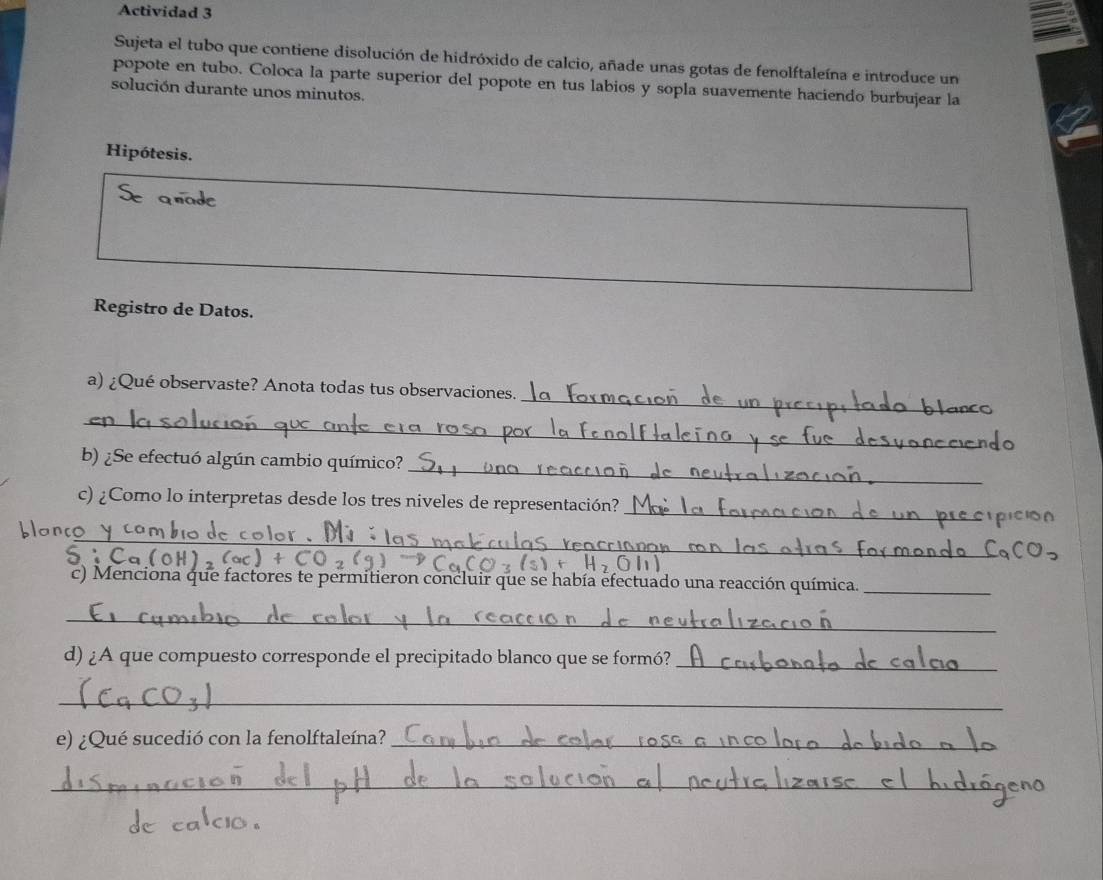 Actividad 3
Sujeta el tubo que contiene disolución de hidróxido de calcio, añade unas gotas de fenolftaleína e introduce un
popote en tubo. Coloca la parte superior del popote en tus labios y sopla suavemente haciendo burbujear la
solución durante unos minutos.
Hipótesis.
Se añade
Registro de Datos.
a) ¿Qué observaste? Anota todas tus observaciones. la formación de un precipitado blanco
en la solución que ante era rosa por la fenolftaleina y se fue desvaneciendo
b) ¿Se efectuó algún cambio químico? Si, una reacción de neutralización.
c) ¿Como lo interpretas desde los tres niveles de representación? Ma: la formacion de un precipicion
blanco y cambio de color. Mi: las moleculas reaccionan con las otras formando CaCO3
S: Ca(OH)2 (ac) + CO2 (g) → CaCO3 (s) + H2O(l)
c) Menciona que factores te permitieron concluir que se había efectuado una reacción química.
El cambio de color y la reaccion de neutralización
d) ¿A que compuesto corresponde el precipitado blanco que se formó? A carbonato de calcio
(CaCO3)
e) ¿Qué sucedió con la fenolftaleína? Cambio de color rosa a incoloro debido a lo
disminación del pH de la solución al neutralizarse el hidrógeno
de calcio.